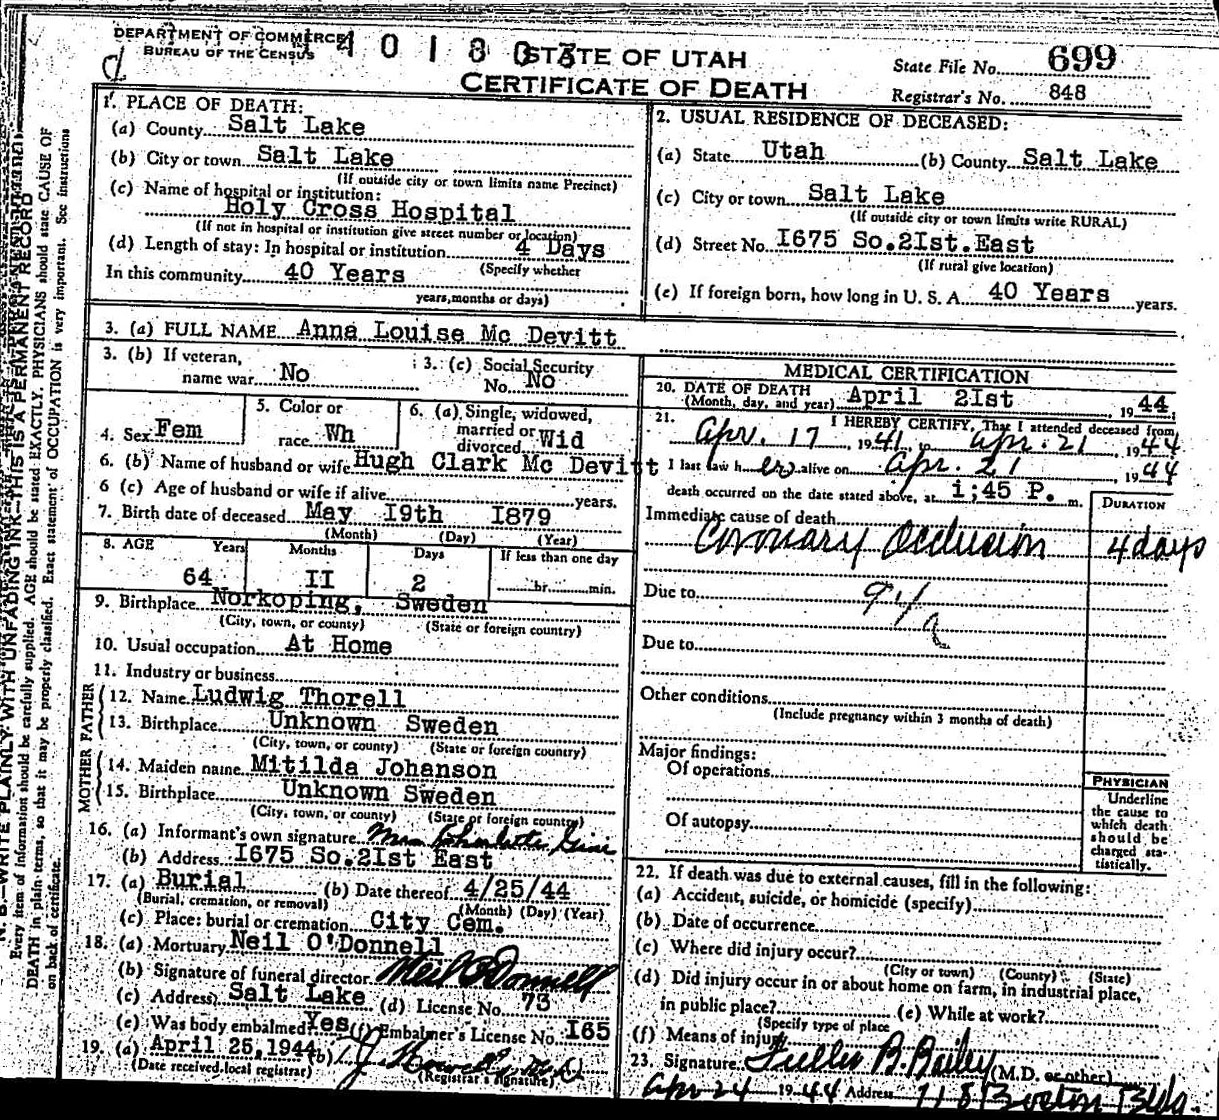 DEPARTMENT OF COMMERCE
BUREAU OF THE CENSUS
STATE OF UTAH
CERTIFICATE OF DEATH
State File No. 699
Registrar's No. 848
1. PLACE OF DEATH:
(a) County Salt Lake
(b) City or town Salt Lake
(If outside city or town limits name Precinct)
(c) Name of hospital or institution:
Holy Cross Hospital
(If not in hospital or institution give street number or location)
(d) Length of stay: In hospital or institution 4 Days
(Specify whether
In this community 40 Years
years, months or days)
2. USUAL RESIDENCE OF DECEASED:
(a) State Utah (b) County Salt Lake
(c) City or town Salt Lake
(If outside city or town limits write RURAL)
(d) Street No. I675 So.2Ist.East
(If rural give location)
(e) If foreign born, how long in U. S. A. 40 Years years.
3. (a) FULL NAME Anna Louise Mc Devitt
3. (b) If veteran,
name war No
3. (c) Social Security
No. No
4. Sex Fem
5. Color or
race Wh
6. (a) Single, widowed,
married or
divorced Wid
6. (b) Name of husband or wife Hugh Clark Mc Devitt
6 (c) Age of husband or wife if alive years.
7. Birth date of deceased May I9th I879
(Month) (Day) (Year)
8. AGE Years Months Days If less than one day
64 II 2 hr. min.
9. Birthplace Norkoping, Sweden
(City, town, or county) (State or foreign country)
10. Usual occupation At Home
11. Industry or business
FATHER
12. Name Ludwig Thorell
13. Birthplace Unknown Sweden
(City, town, or county) (State or foreign country)
MOTHER
14. Maiden name Mitilda Johanson
15. Birthplace Unknown Sweden
(City, town, or county) (State or foreign country)
16. (a) Informant's own signature Mrs Charlotte
(b) Address I675 So.2Ist East
17. (a) Burial (b) Date thereof 4/25/44
(Burial, cremation, or removal) (Month) (Day) (Year)
(c) Place: burial or cremation City Cem.
18. (a) Mortuary Neil O'Donnell
(b) Signature of funeral director Neil O'Donnell
(c) Address Salt Lake (d) License No. 73
(e) Was body embalmed? Yes (f) Embalmer's License No. I65
19. (a) April 25,1944 (b)
(Date received local registrar) (Registrar's signature)
MEDICAL CERTIFICATION
20. DATE OF DEATH
(Month, day, and year) April 2Ist, 1944.
21. I HEREBY CERTIFY, That I attended deceased from
Apr. 17, 1941 to Apr. 21, 1944
I last saw her alive on Apr. 21, 1944
death occurred on the date stated above, at 1;45 P. m.
DURATION
Immediate cause of death
Coronary Occlusion 4 days
Due to 94a
Due to
Other conditions
(Include pregnancy within 3 months of death)
Major findings:
Of operations
Of autopsy
PHYSICIAN
Underline
the cause to
which death
should be
charged sta-
tistically.
22. If death was due to external causes, fill in the following:
(a) Accident, suicide, or homicide (specify)
(b) Date of occurrence
(c) Where did injury occur?
(City or town) (County) (State)
(d) Did injury occur in or about home on farm, in industrial place,
in public place? (e) While at work?
(Specify type of place
(f) Means of injury
23. Signature Fuller B. Bailey (M.D. or other)
Apr 24 1944 Address 718 Boston Bldg.
N. B.—WRITE PLAINLY WITH UNFADING INK—THIS IS A PERMANENT RECORD
Every item of information should be carefully supplied. AGE should be stated EXACTLY. PHYSICIANS should state CAUSE OF
DEATH in plain terms, so that it may be properly classified. Exact statement of OCCUPATION is very important. See instructions
on back of certificate.